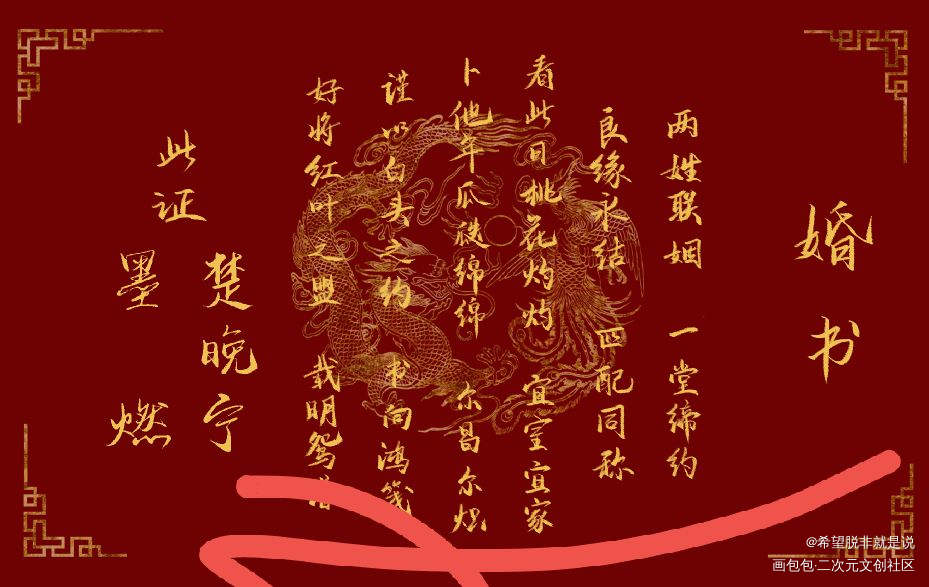 婚书
两姓联姻 一堂缔约
良缘永结 匹配同称
看此日桃花灼灼 宜室宜家
卜他年瓜瓞绵绵 尔昌尔炽
谨以白头之约 书向鸿笺
好将红叶之盟 载明鸳谱
此证
楚晚宁
墨燃
@希望脱非就是说
画包包·二次元文创社区